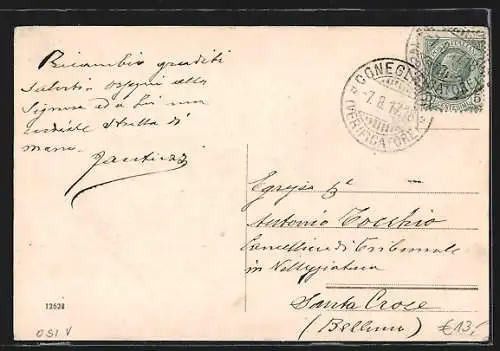 Ricambio graditi
saluti ossequi alla
Signora ed a Lei una
cordiale stretta di
mano.
CONEGL
7.8.
(VERIFICATORE)
Egregio
Antonio Tocchio
Cancelliere di Tribunale
in Villeggiatura
Santa Croce
(Belluno)
12628
OSI V
€13,-